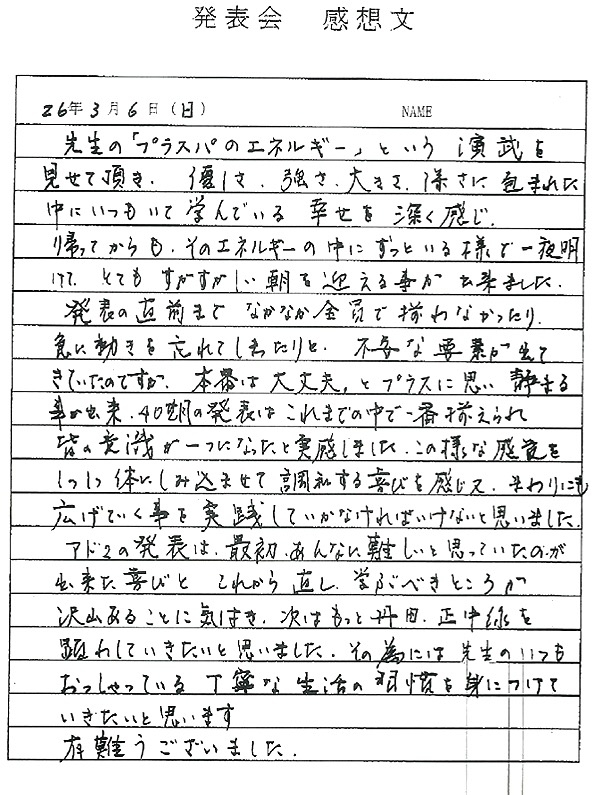 発表会 感想文
26年3月6日(日) NAME
先生の「プラスパのエネルギー」という 演武を
見せて頂き、優しさ、強さ、大きさ、深さに包まれた
中にいつもいて学んでいる 幸せを 深く感じ、
帰ってからも、そのエネルギーの中にずっといる様で一夜明
けて、とてもすがすがしい朝を迎える事が出来ました。
発表の直前まで なかなか全員で揃わなかったり、
急に動きを忘れてしまったりと、不安な要素が出て
きていたのですが、本番は大丈夫、とプラスに思い 静まる
事が出来、40期の発表はこれまでの中で一番揃えられ
皆の意識が一つになったと実感しました。この様な感覚を
しっしっ体にしみ込ませて 調和する喜びを感じ又、まわりにも
広げていく事を実践していかなければいけないと思いました。
アド2の発表は、最初、あんなに難しいと思っていたのが
出来た喜びと これから直し、学ぶべきところが
沢山あることに気付き、次はもっと丹田、正中線を
顕わしていきたいと思いました。その為には先生のいつも
おっしゃっている 丁寧な生活の習慣を身につけて
いきたいと思います
有難うございました。